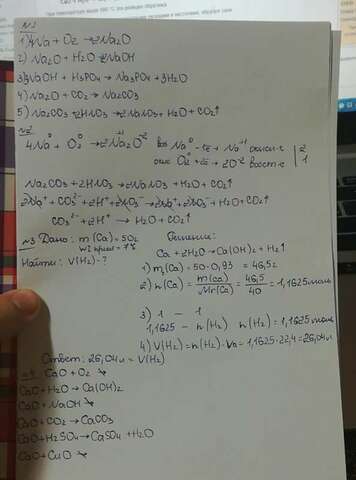 №1
1) 4Na + O₂ → 2Na₂O
2) Na₂O + H₂O → 2NaOH
3) 3NaOH + H₃PO₄ → Na₃PO₄ + 3H₂O
4) Na₂O + CO₂ → Na₂CO₃
5) Na₂CO₃ + 2HNO₃ → 2NaNO₃ + H₂O + CO₂↑
№2
4Na⁰ + O₂⁰ → 2Na₂⁺¹O⁻²
Na⁰ - 1e → Na⁺¹ окис-е | 2
O₂⁰ + 4e → 2O⁻² восст-е | 1
Na₂CO₃ + 2HNO₃ → 2NaNO₃ + H₂O + CO₂↑
2Na⁺ + CO₃²⁻ + 2H⁺ + 2NO₃⁻ → 2Na⁺ + 2NO₃⁻ + H₂O + CO₂↑
CO₃²⁻ + 2H⁺ → H₂O + CO₂↑
№3 Дано: m(Ca) = 50г
Решение:
Ca + 2H₂O → Ca(OH)₂ + H₂↑
Найти: V(H₂) - ?
1) m(Ca) = 50 · 0,93 = 46,5г
2) n(Ca) = m(Ca)/Mr(Ca) = 46,5/40 = 1,1625моль
3) 1 — 1
1,1625 – n(H₂) n(H₂) = 1,1625 моль
4) V(H₂) = n(H₂) · Vm = 1,1625 · 22,4 = 26,04л
Ответ: 26,04л = V(H₂)
CaO + O₂ ↛
CaO + H₂O → Ca(OH)₂
CaO + NaOH ↛
CaO + CO₂ → CaCO₃
CaO + H₂SO₄ → CaSO₄ + H₂O
CaO + CuO ↛